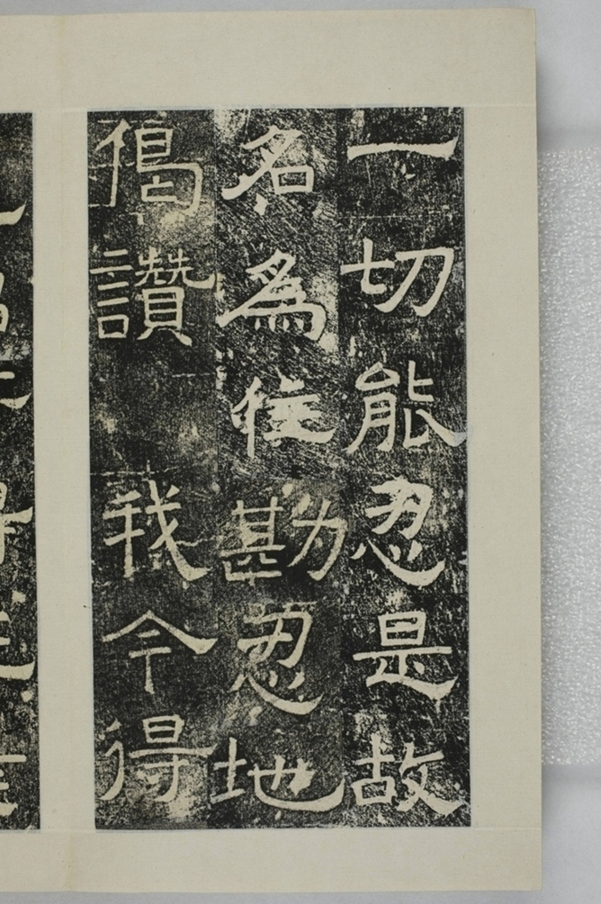 一切能忍是故
名為住勘忍地
偈讚 我今得